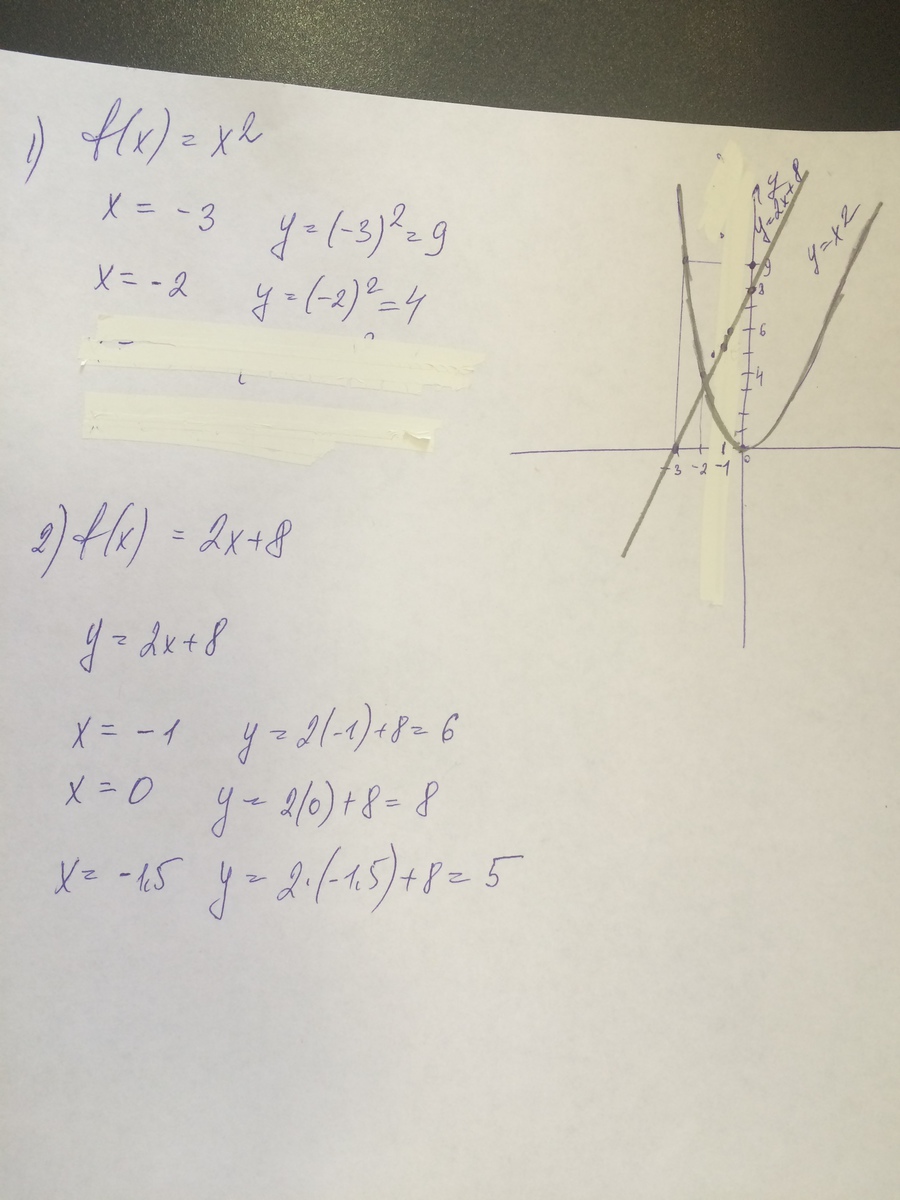 1) f(x) = x2
x = -3 y = (-3)² = 9
x = -2 y = (-2)² = 4
2) f(x) = 2x+8
y = 2x+8
x = -1 y = 2(-1)+8 = 6
x = 0 y = 2(0)+8 = 8
x = -1,5 y = 2·(-1,5)+8 = 5
y
y=2x+8
y=x2
9
8
6
4
-3 -2 -1 0